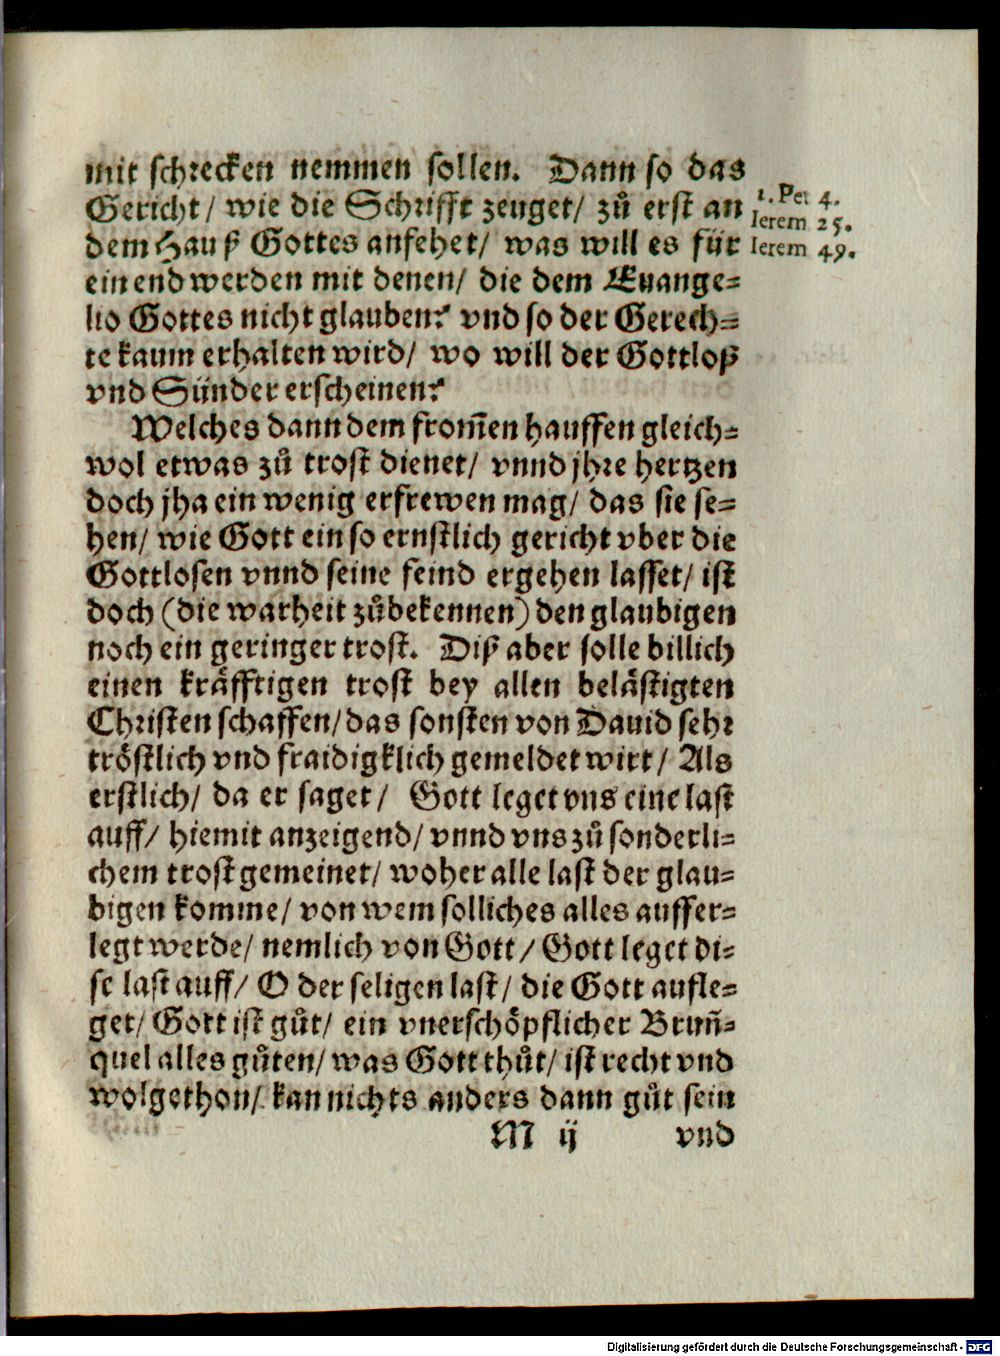 mit schrecken nemmen sollen. Dann so das
Gericht/ wie die Schrifft zeuget/ zů erst an
dem Hauß Gottes anfehet/ was will es für
ein end werden mit denen/ die dem Euange=
lio Gottes nicht glauben? vnd so der Gerech=
te kaum erhalten wird/ wo will der Gottloß
vnd Sünder erscheinen?
1. Pet 4.
Ierem 25.
Ierem 49.
Welches dann dem from̃en hauffen gleich=
wol etwas zů trost dienet/ vnnd jhre hertzen
doch jha ein wenig erfrewen mag/ das sie se=
hen/ wie Gott ein so ernstlich gericht vber die
Gottlosen vnnd seine feind ergehen lasset/ ist
doch (die warheit zůbekennen) den glaubigen
noch ein geringer trost. Diß aber solle billich
einen kräfftigen trost bey allen belästigten
Christen schaffen/ das sonsten von Dauid sehr
tröstlich vnd fraidigklich gemeldet wirt/ Als
erstlich/ da er saget/ Gott leget vns eine last
auff/ hiemit anzeigend/ vnnd vns zů sonderli=
chem trost gemeinet/ woher alle last der glau=
bigen komme/ von wem solliches alles auffer=
legt werde/ nemlich von Gott/ Gott leget di=
se last auff/ O der seligen last/ die Gott aufle=
get/ Gott ist gůt/ ein vnerschöpflicher Brun̄=
quel alles gůten/ was Gott thůt/ ist recht vnd
wolgethon/ kan nichts anders dann gůt sein
M ij vnd
Digitalisierung gefördert durch die Deutsche Forschungsgemeinschaft - DFG